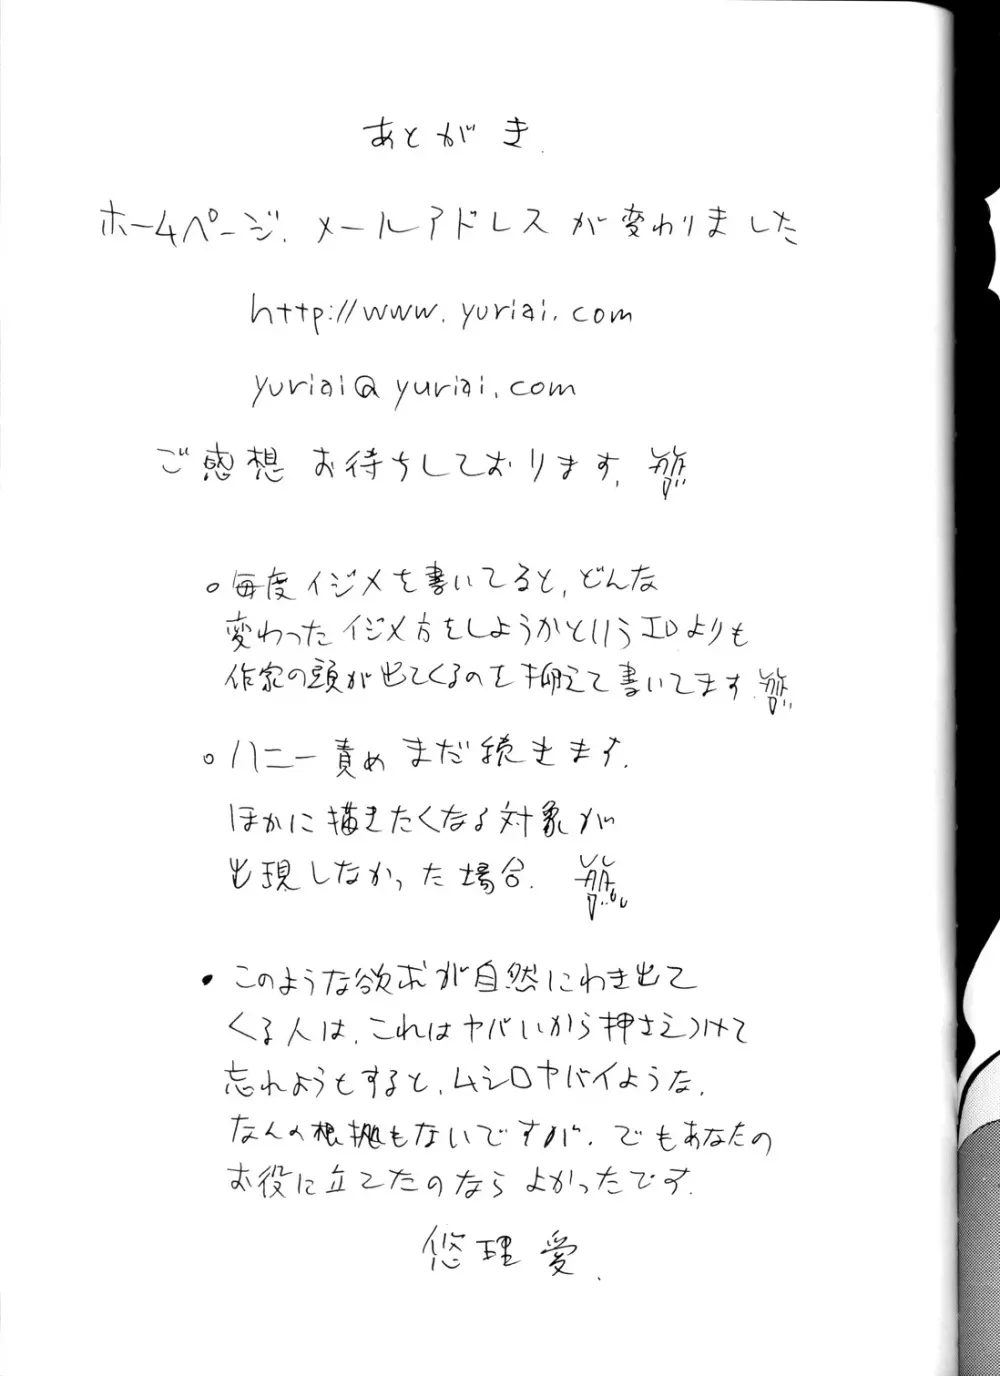 あとがき.
ホームページ.メールアドレスが変わりました
http://www.yuriai.com
yuriai@yuriai.com
ご感想お待ちしております.
。毎度イジメを書いてると,どんな
変わったイジメ方をしようかというエロよりも
作家の頭が出てくるのを抑えて書いてます.
。ハニー責めまだ続きます.
ほかに描きたくなる対象が
出現しなかった場合.
・このような欲求が自然にわき出て
くる人は.これはヤバいから押さえつけて
忘れようとすると.ムシロヤバイような.
なんの根拠もないですが.でもあなたの
お役に立てたのならよかったです.
悠理愛.